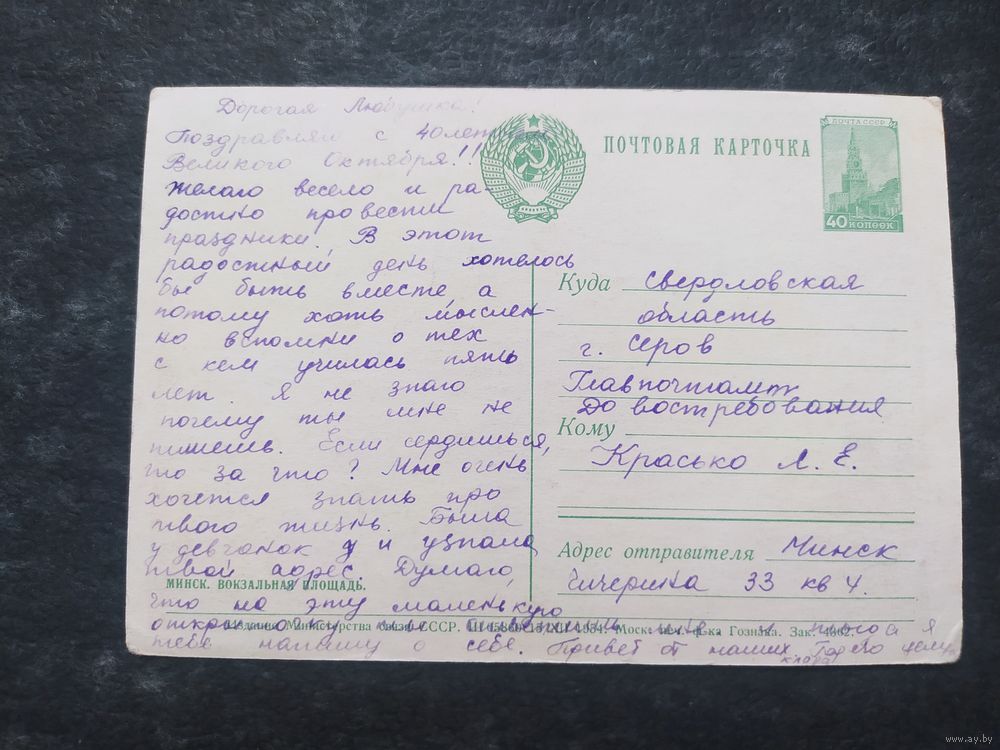 Дорогая Любушка!
Поздравляю с 40летием
Великого Октября!!!
Желаю весело и ра-
достно провести
праздники. В этот
радостный день хотелось
бы быть вместе, а
потому хоть мыслен-
но вспомни о тех
с кем училась пять
лет. Я не знаю
почему ты мне не
пишешь. Если сердишься,
то за что? Мне очень
хочется знать про
твою жизнь. Была
у девчонок и узнала
твой адрес. Думаю,
что на эту маленькую
открыточку мне и тогда я
тебе напишу о себе. Привет от наших
ПОЧТОВАЯ КАРТОЧКА
ПОЧТА СССР
40 КОПЕЕК
Куда Свердловская
область
г. Серов
Главпочтамт
До востребования
Кому
Красько Л. Е.
Адрес отправителя Минск
Чичерина 33 кв 4.
МИНСК. ВОКЗАЛЬНАЯ ПЛОЩАДЬ.
Издание Министерства связи СССР. 1954. Моск. печ. ф-ка Гознака. Зак.
www.ay.by